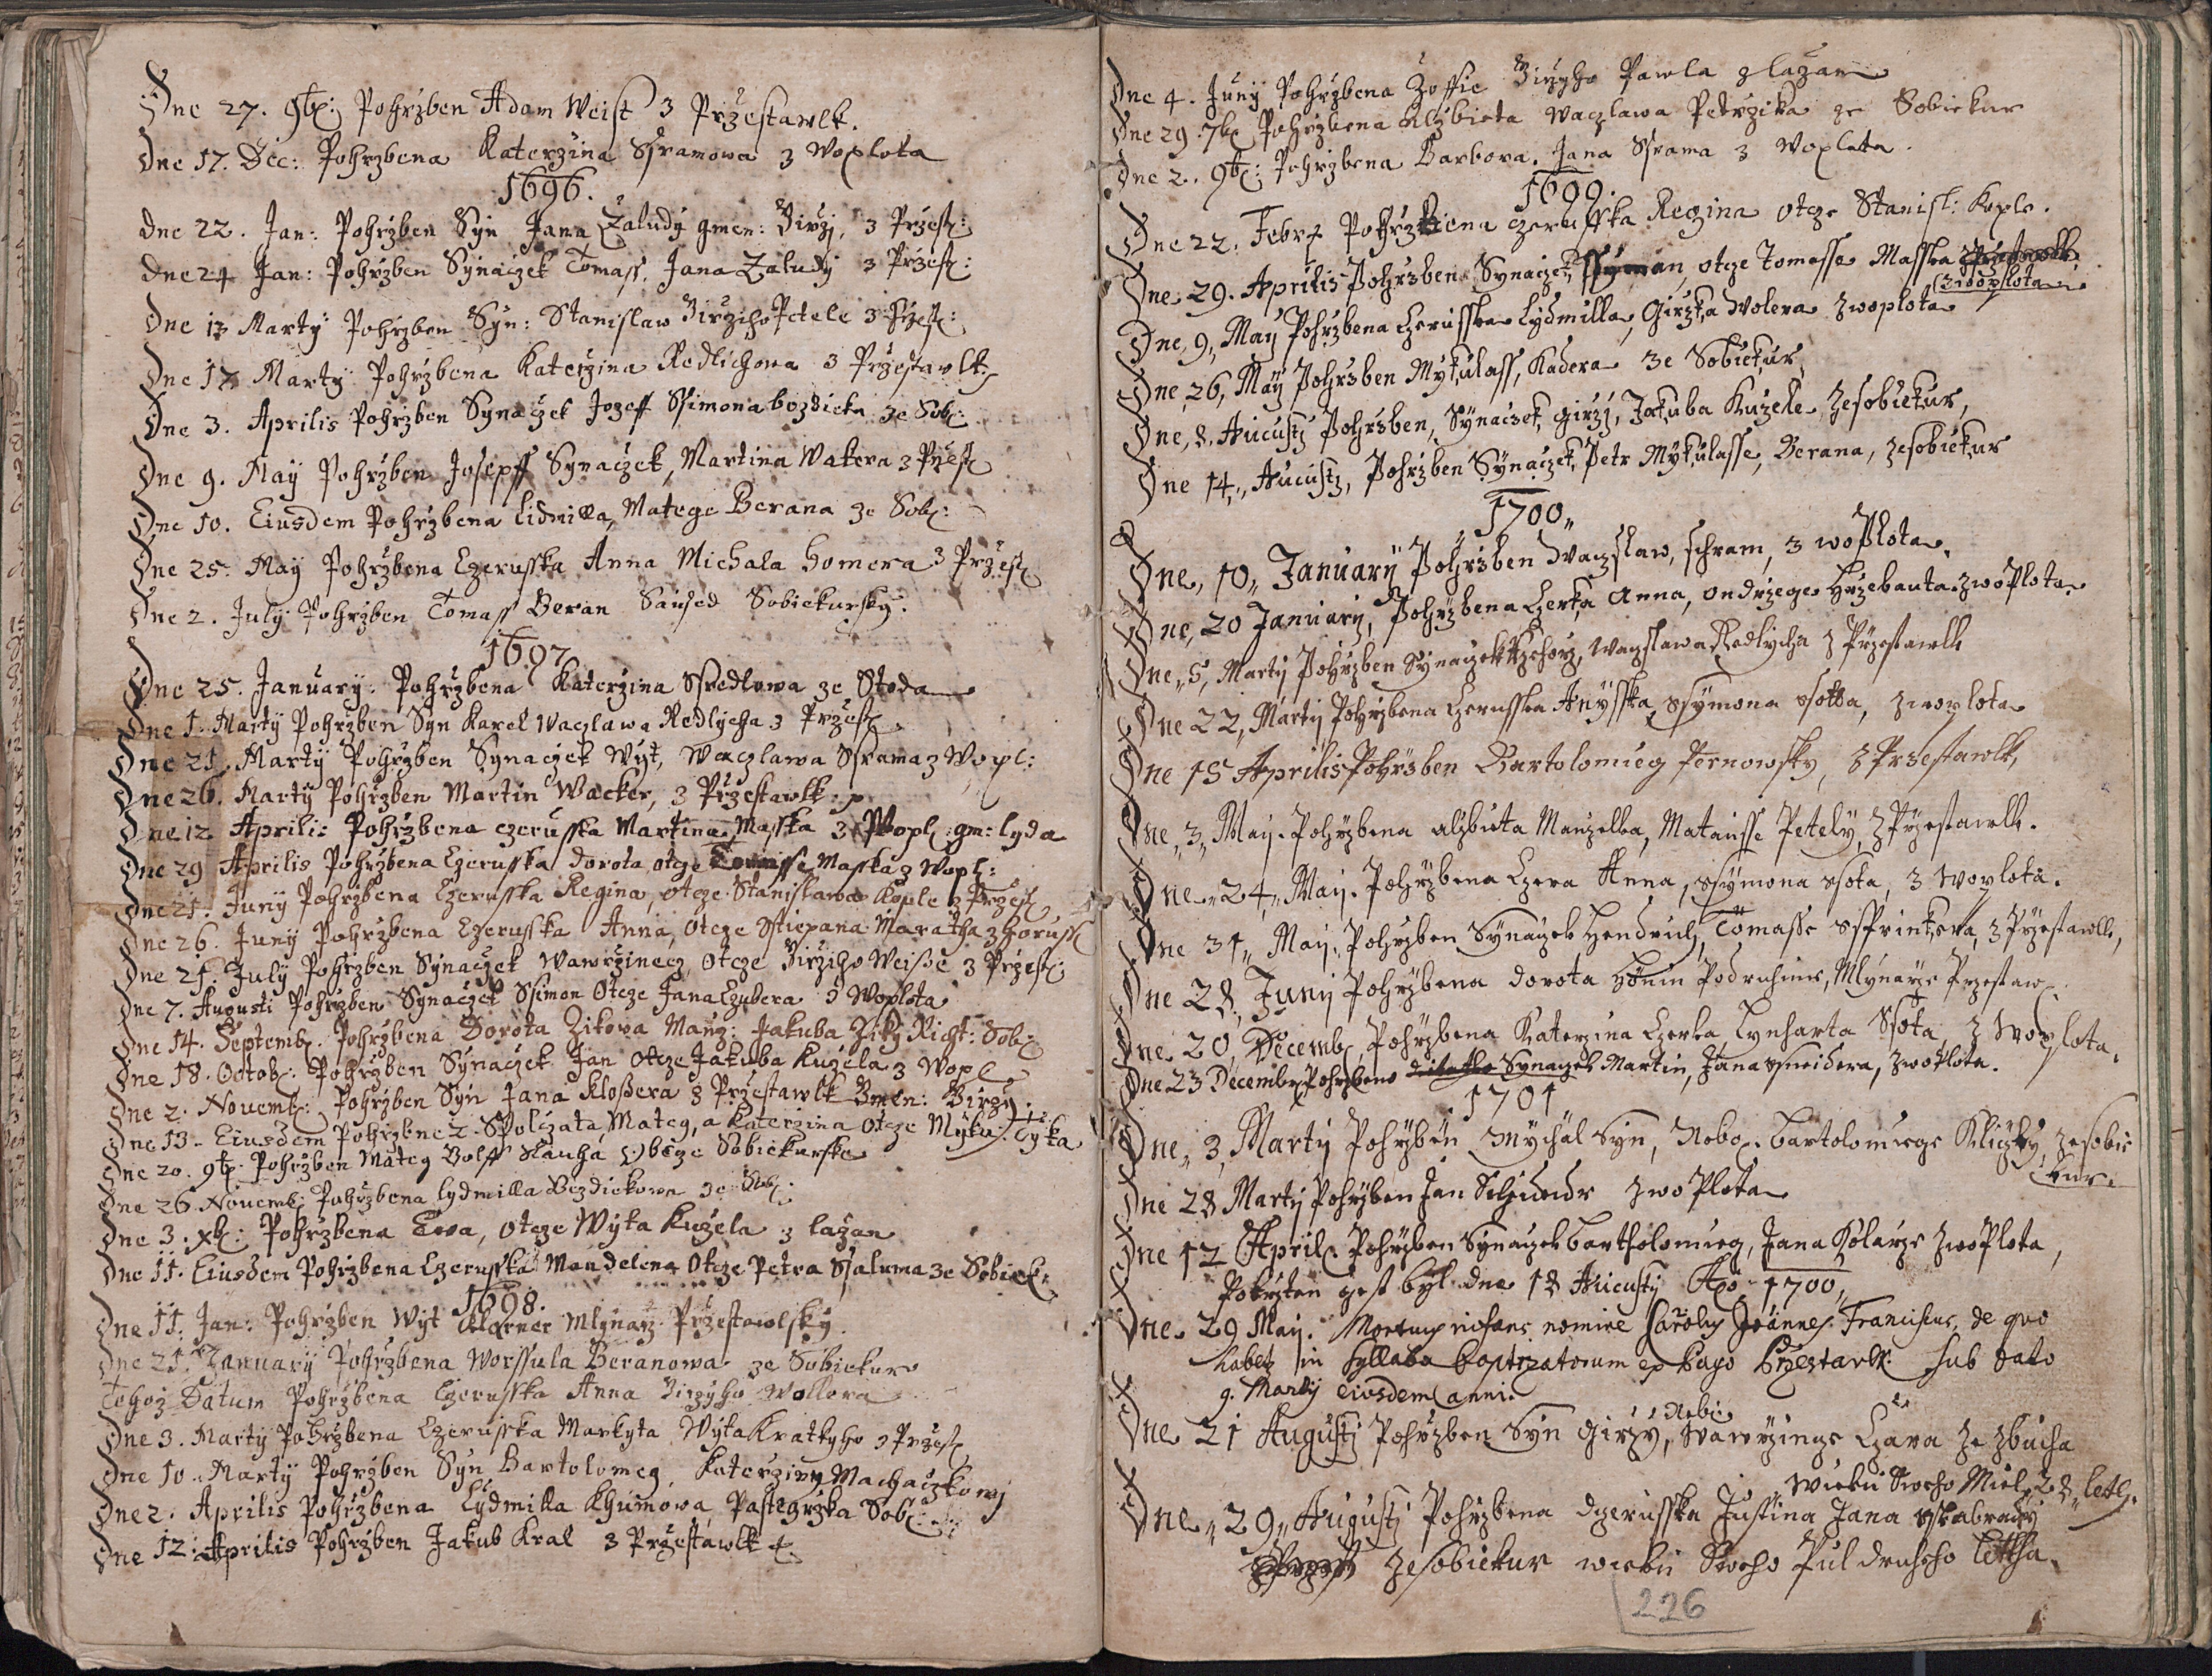 Dne 27. 9b: Pohrzben Adam Weist z Przestawlk.
Dne 17. Dec: Pohrzbena Katerzina Sframowa z Woplota
1696.
Dne 22. Jan: Pohrzben Syn Jana Zaludy gmen: Girzj, z Przest:
Dne 24 Jan: Pohrzben Synaczek Tomass, Jana Zaludy z Przest:
Dne 13 Marty Pohrzben Syn: Stanislaw Girziho Petele z Przest:
Dne 17 Marty Pohrzbena Katerzina Redlichowa z Przestawlk
Dne 3. Aprilis Pohrzben Synaczek Jozeff Ssimona bozdieka ze Sob:
Dne 9. May Pohrzben Josepff Synaczek, Martina Wakera z Przest
Dne 10. Eiusdem Pohrzbena Lidmilla, Matege Berana ze Sob:
Dne 25. May Pohrzbena Czerusska Anna Michala homera z Przest
Dne 2. July Pohrzben Tomass Beran Saused Sobiekursky.
1697
Dne 25. January. Pohrzbena Katerzina Ssredlowa ze Stoda
Dne 1. Marty Pohrzben Syn Karel Waczlawa Redlycha z Przest
Dne 21. Marty Pohrzben Synaczek Wyt, Waczlawa Sframa z Wopl:
Dne 26. Marty Pohrzben Martin Wacker, z Przestawlk
Dne 12 Aprilis Pohrzbena czerusska Martina Masska z Wopl: gm: lyda
Dne 29 Aprilis Pohrzbena Czerusska dorota otcze Tomasse Masska z Wopl:
Dne 21. Juny Pohrzbena Czerusska Regina, otcze Stanislawa Kople z Przest
Dne 26. Juny Pohrzbena Czerusska Anna, otcze Sstiepana Maratha z horuss
Dne 21. July Pohrzben Synaczek Wawrzinecz, Otcze Girziho Weisse z Przest:
Dne 7. Augusti Pohrzben Synaczek Ssimon Otcze Jana Czubera z Woplota
Dne 14. Septemb. Pohrzbena Dorota Zikowa Manz: Jakuba Ziky Richt: Sob:
Dne 18. Octob: Pohrzben Synaczek Jan otcze Jakuba Kuzela z Wopl
Dne 2. Novemb: Pohrzben Syn Jana Klossera z Przestawlk Gmen: Girzy.
Dne 13. Eiusdem Pohrzbene 2. Spolczata Mateg, a Katerzina Otcze Myku: Tyka
Dne 20. 9b: Pohrzben Mateg Wolff Slauha Obcze Sobiekurske
Dne 26. Novemb: Pohrzbena lydmilla Bezdiekowa ze Sob:
Dne 3. xb: Pohrzbena Ewa, otcze Wyta Kuzela z lazan
Dne 11. Eiusdem Pohrzbena Czerusska Mandelena Otcze Petra Ssaluma ze Sobiek:
1698.
Dne 11. Jan: Pohrzben Wyt Klarner Mlynarz Przestawlsky
Dne 21. January Pohrzbena Worssula Beranowa ze Sobiekur
Tehoz Datum Pohrzbena Czerusska Anna Girzyho Wollera
Dne 3. Marty Pohrzbena Czerusska Markyta Wyta Kratkyho z Przest
Dne 10. Marty Pohrzben Syn Bartolomeg, Katerziny Machaczkowy
Dne 2. Aprilis Pohrzbena Lydmilla Khumowa, Pastegrzka Sob:
Dne 12. Aprilis Pohrzben Jakub Kral z Przestawlk
Dne 4. Juny Pohrzbena Zoffie Girzyho Pawla z lazan
Dne 29. 7b Pohrzbena Alzbieta Waczlawa Petrzika ze Sobiekur
Dne 2. 9b: Pohrzbena Barbora, Jana Sframa z Woplota.
1699.
Dne 22. Febr Pohrzbena czerusska Regina otcze Stanisl: Kople.
Dne 29. Aprilis Pohrzben Synaczek, Ssyman, otcze Tomasse Masska
z Woplota
Dne, 9, May Pohrzbena Czerusska Lydmilla, Girzka Wolera z woplota
Dne 26, May Pohrzben Mykulass, Kadera ze Sobiekur,
Dne, 8. Aucustj Pohrzben, Synaczek, girzj, Jakuba Kuzele zesobiekur,
Dne 14, Aucustj, Pohrzben Synaczek, Petr Mykulasse, Berana, zesobiekur
1700,,
Dne, 10, January Pohrzben Waczslaw, schram, z woplota
Dne, 20 January, Pohrzbena Czerka Anna, ondrzege Hrzebauta z woplota
Dne, 5, Marty Pohrzben Synaczek Rzehorz, Waczslawa Redlycha z Przestawlk
Dne 22, Marty Pohrzbena Czerusska Anysska, ssymona ssotta, z woplota
Dne 15 Aprilis Pohrzben Bartolomieg Pernowsky, z Przestawlk,
Dne, 3, May. Pohrzbena alzbieta Manzelka, Matausse Petely, z Przestawlk.
Dne, 24, May. Pohrzbena Czera Anna, ssymona ssota, z Woplota.
Dne 31, May. Pohrzben Synaczek Hendrich, Tomasse Ssprinkera, z Przestawlk,
Dne 28, Juny Pohrzbena dorota podruhine, Mlynarze Przestaw
Dne 20, Decemb, Pohrzbena Katerzina Czerka, Lynharta Ssota, z Woplota.
Dne 23 Decembr Pohrzbeno Synaczek Martin, Jana ssneidera, z woplota.
1701
Dne, 3, Marty Pohrzben Mychal Syn, Nebo. bartolomiege Kliczky, zesobie
kur.
Dne 28 Marty Pohrzben Jan Schneidr z woplota
Dne 12 April Pohrzben Synaczek bartholomieg, Jana Kolarze z woplota,
Pokrzten gest byl dne 18 Aucusty Ao 1700,,
Dne 29 May. Mortuus infans nomine Carolus Joannes Franciscus, de quo
habetur in Syllabo baptizatorum ex Pago Przestawlk sub dato
9. Marty eiusdem anni
Nebo
Dne 21 Augustj Pohrzben Syn Girzy, Wawrzincze Czara ze zbucha
wieku sweho Miel, 28, leth.
Dne, 29, Augustj Pohrzbena dczerusska Justina Jana sskabrady
zesobiekur wieku sweho Pul druheho lettha.
226